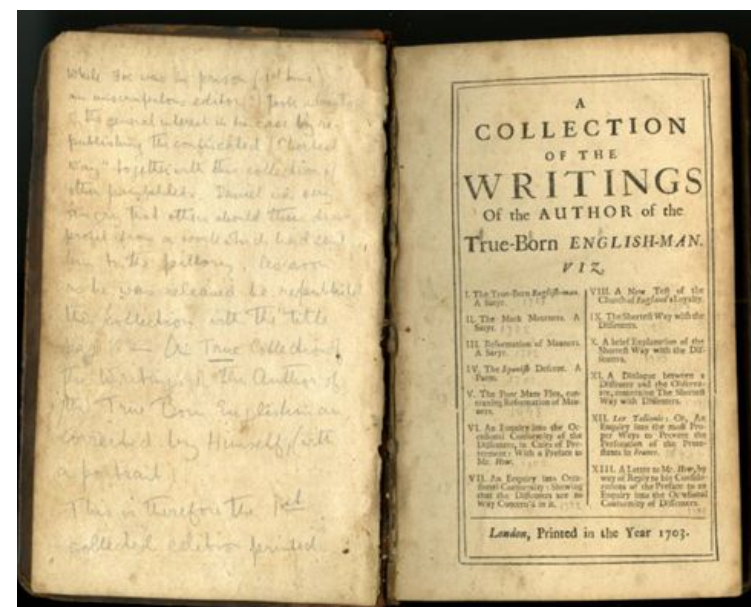 While Foe was in prison (1st time)
an unscrupulous editor took
the general interest in his case by re-
publishing the confiscated "Shortest
Way" together with this collection of
other pamphlets. Daniel was very
angry that others should
profit from a work which had sent
him to the pillory. As soon
as he was released he republished
this collection with the title
A True Collection of
the Writings of the Author of
the True Born Englishman
corrected by Himself, with
a portrait
This is therefore the 1st
collected edition printed
A
COLLECTION
OF THE
WRITINGS
Of the AUTHOR of the
True-Born ENGLISH-MAN.
VIZ.
I. The True-Born English-man.
A Satyr.
II. The Mock Mourners. A
Satyr.
III. Reformation of Manners.
A Satyr.
IV. The Spanish Descent. A
Poem.
V. The Poor Mans Plea, con-
cerning Reformation of Man-
ners.
VI. An Enquiry into the Oc-
casional Conformity of the
Dissenters, in Cases of Pre-
ferment: With a Preface to
Mr. How.
VII. An Enquiry into Occa-
sional Conformity: Shewing
that the Dissenters are no
Way Concern'd in it.
VIII. A New Test of the
Church of England's Loyalty.
IX. The Shortest Way with the
Dissenters.
X. A brief Explanation of the
Shortest Way with the Dis-
senters.
XI. A Dialogue between a
Dissenter and the Observa-
tor, concerning The Shortest
Way with Dissenters.
XII. Lex Talionis: Or, An
Enquiry into the most Pro-
per Ways to Prevent the
Persecution of the Prote-
stants in France.
XIII. A Letter to Mr. How, by
way of Reply to his Conside-
rations of the Preface to an
Enquiry into the Occasional
Conformity of Dissenters.
London, Printed in the Year 1703.